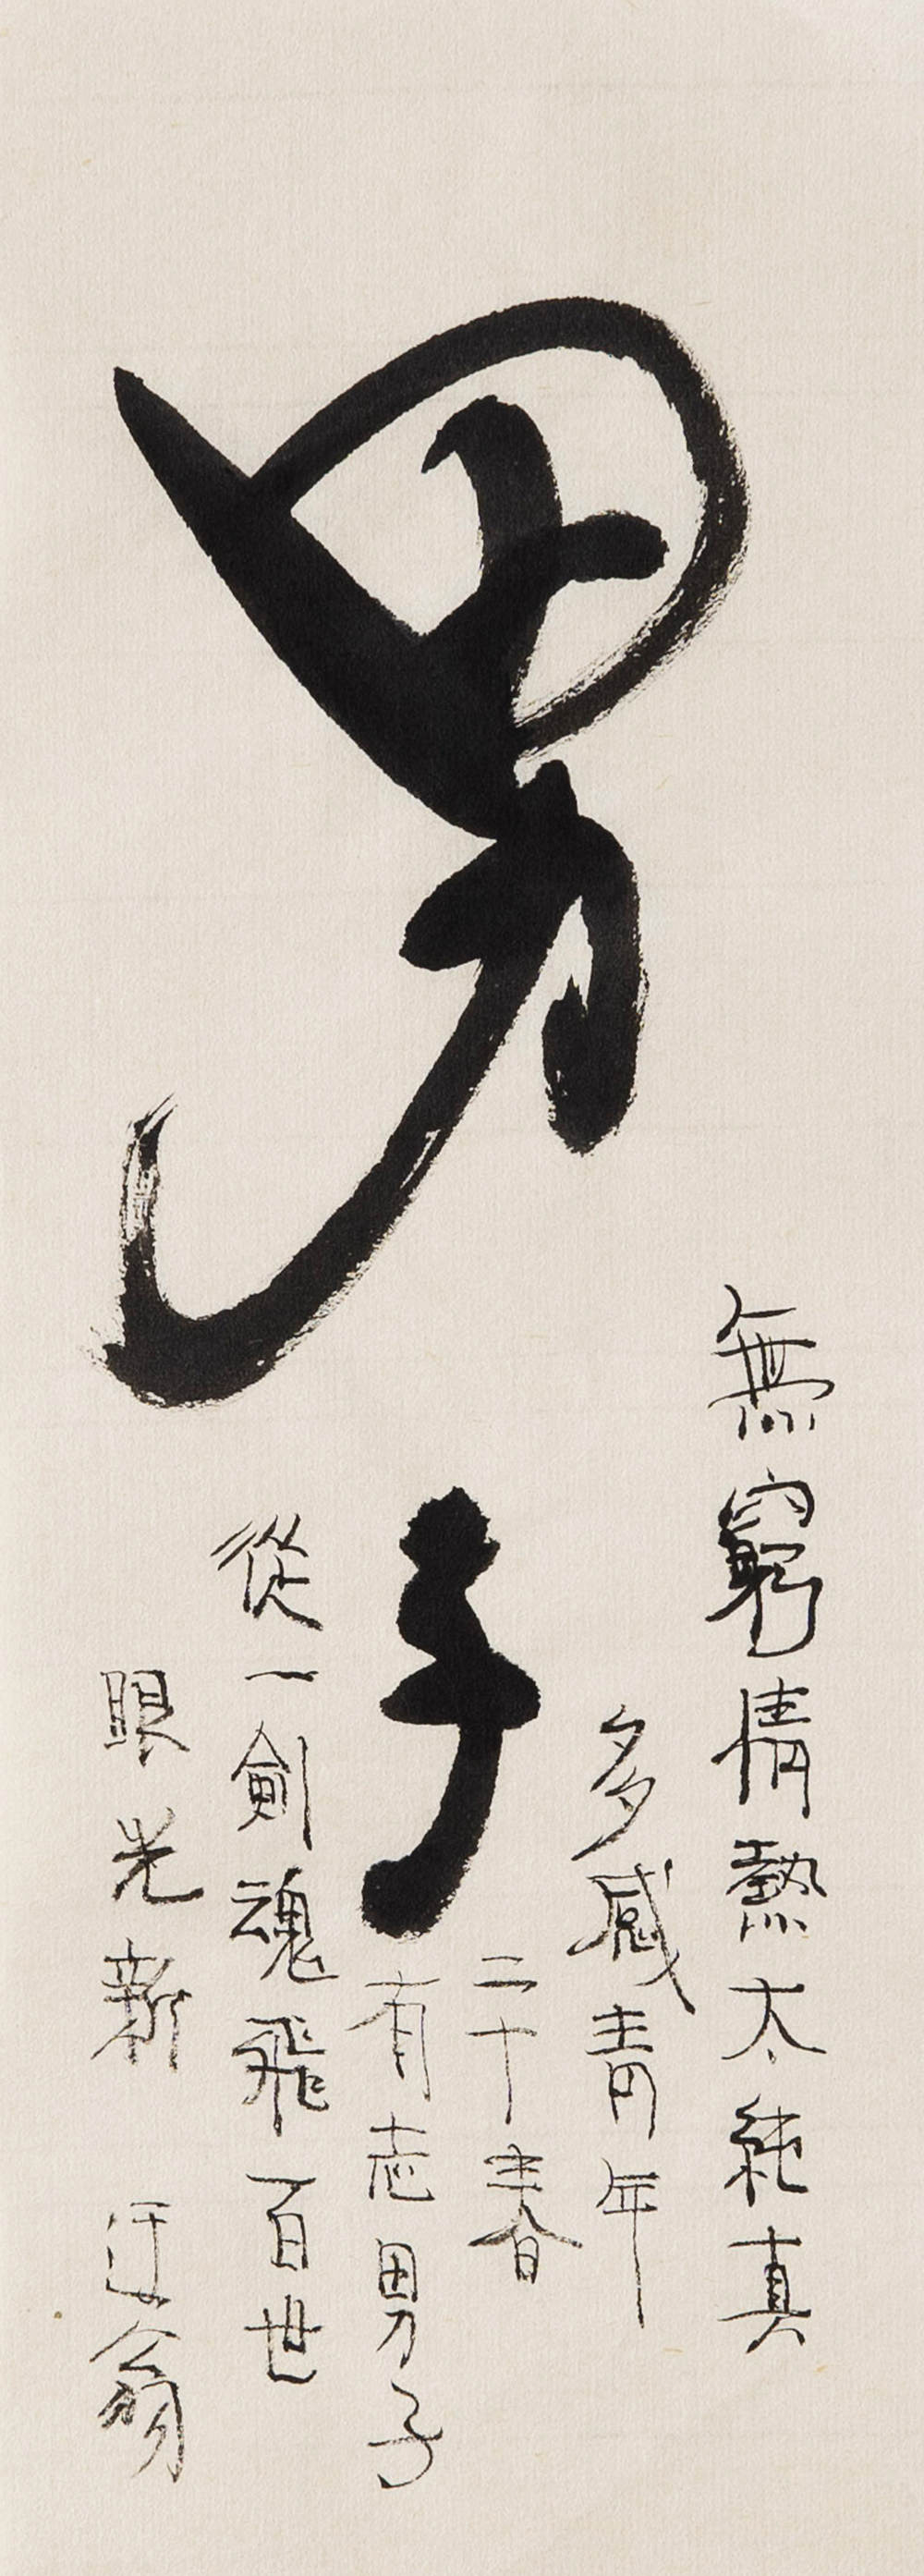 男子
無窮情熱太純真
多感青年
二十春
有志男子
從一劍魂飛百世
眼光新
迂翁